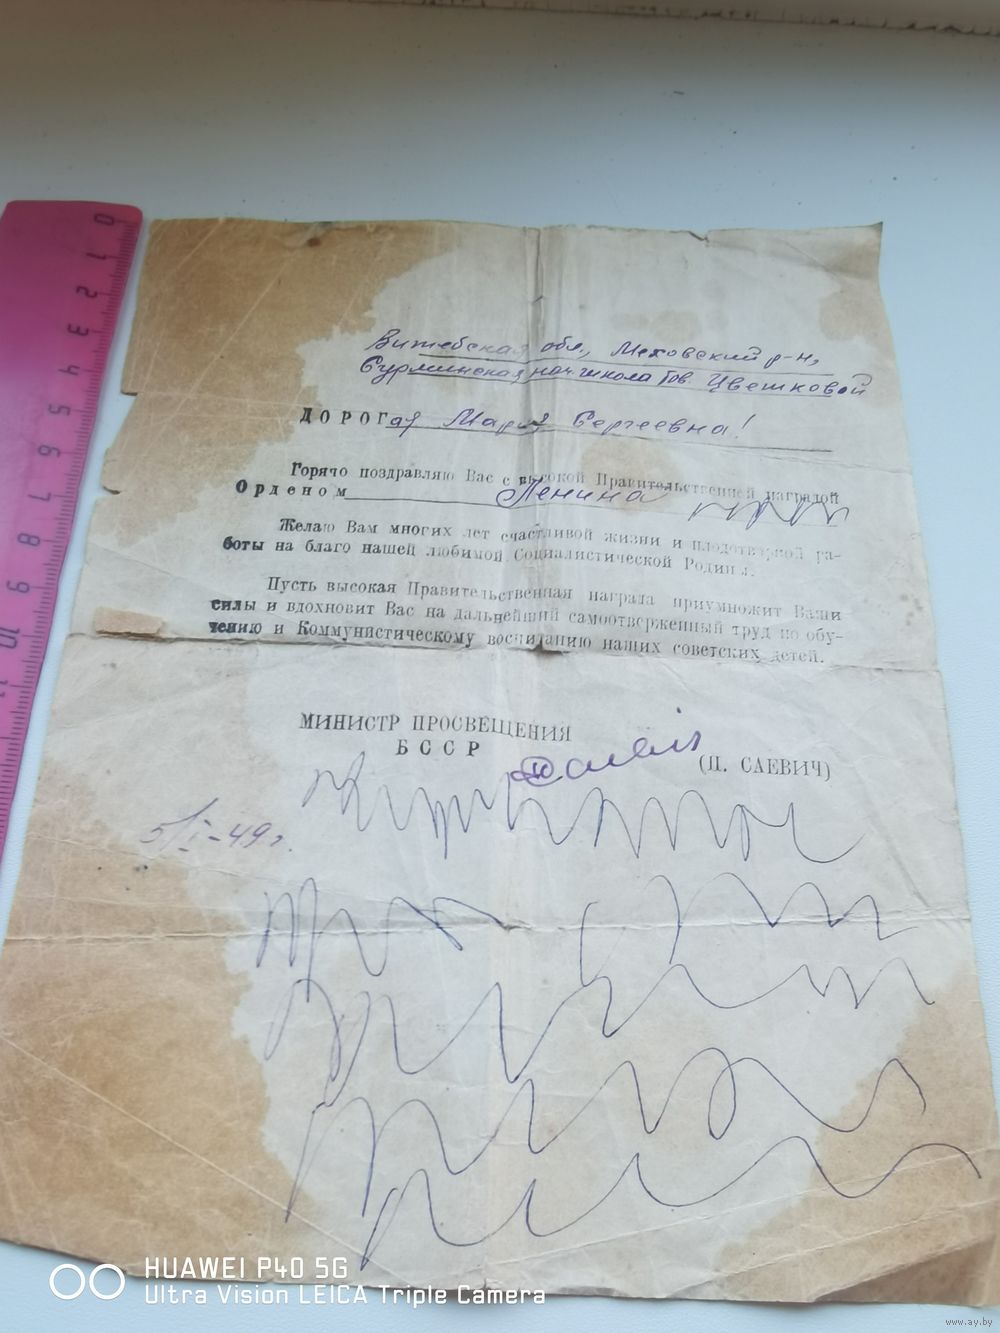 Витебская обл., Меховский р-н,
Сурминская нач школа тов. Цветковой
ДОРОГая Мария Сергеевна!
Горячо поздравляю Вас с высокой Правительственной наградой
Орденом Ленина
Желаю Вам многих лет счастливой жизни и плодотворной ра-
боты на благо нашей любимой Социалистической Родины.
Пусть высокая Правительственная награда приумножит Ваши
силы и вдохновит Вас на дальнейший самоотверженный труд по обу-
чению и Коммунистическому воспитанию наших советских детей.
МИНИСТР ПРОСВЕЩЕНИЯ
БССР
(П. САЕВИЧ)
5/I-49 г.
0 1 2 3 4 5 6 7 8 9
HUAWEI P40 5G
Ultra Vision LEICA Triple Camera
www.ay.by